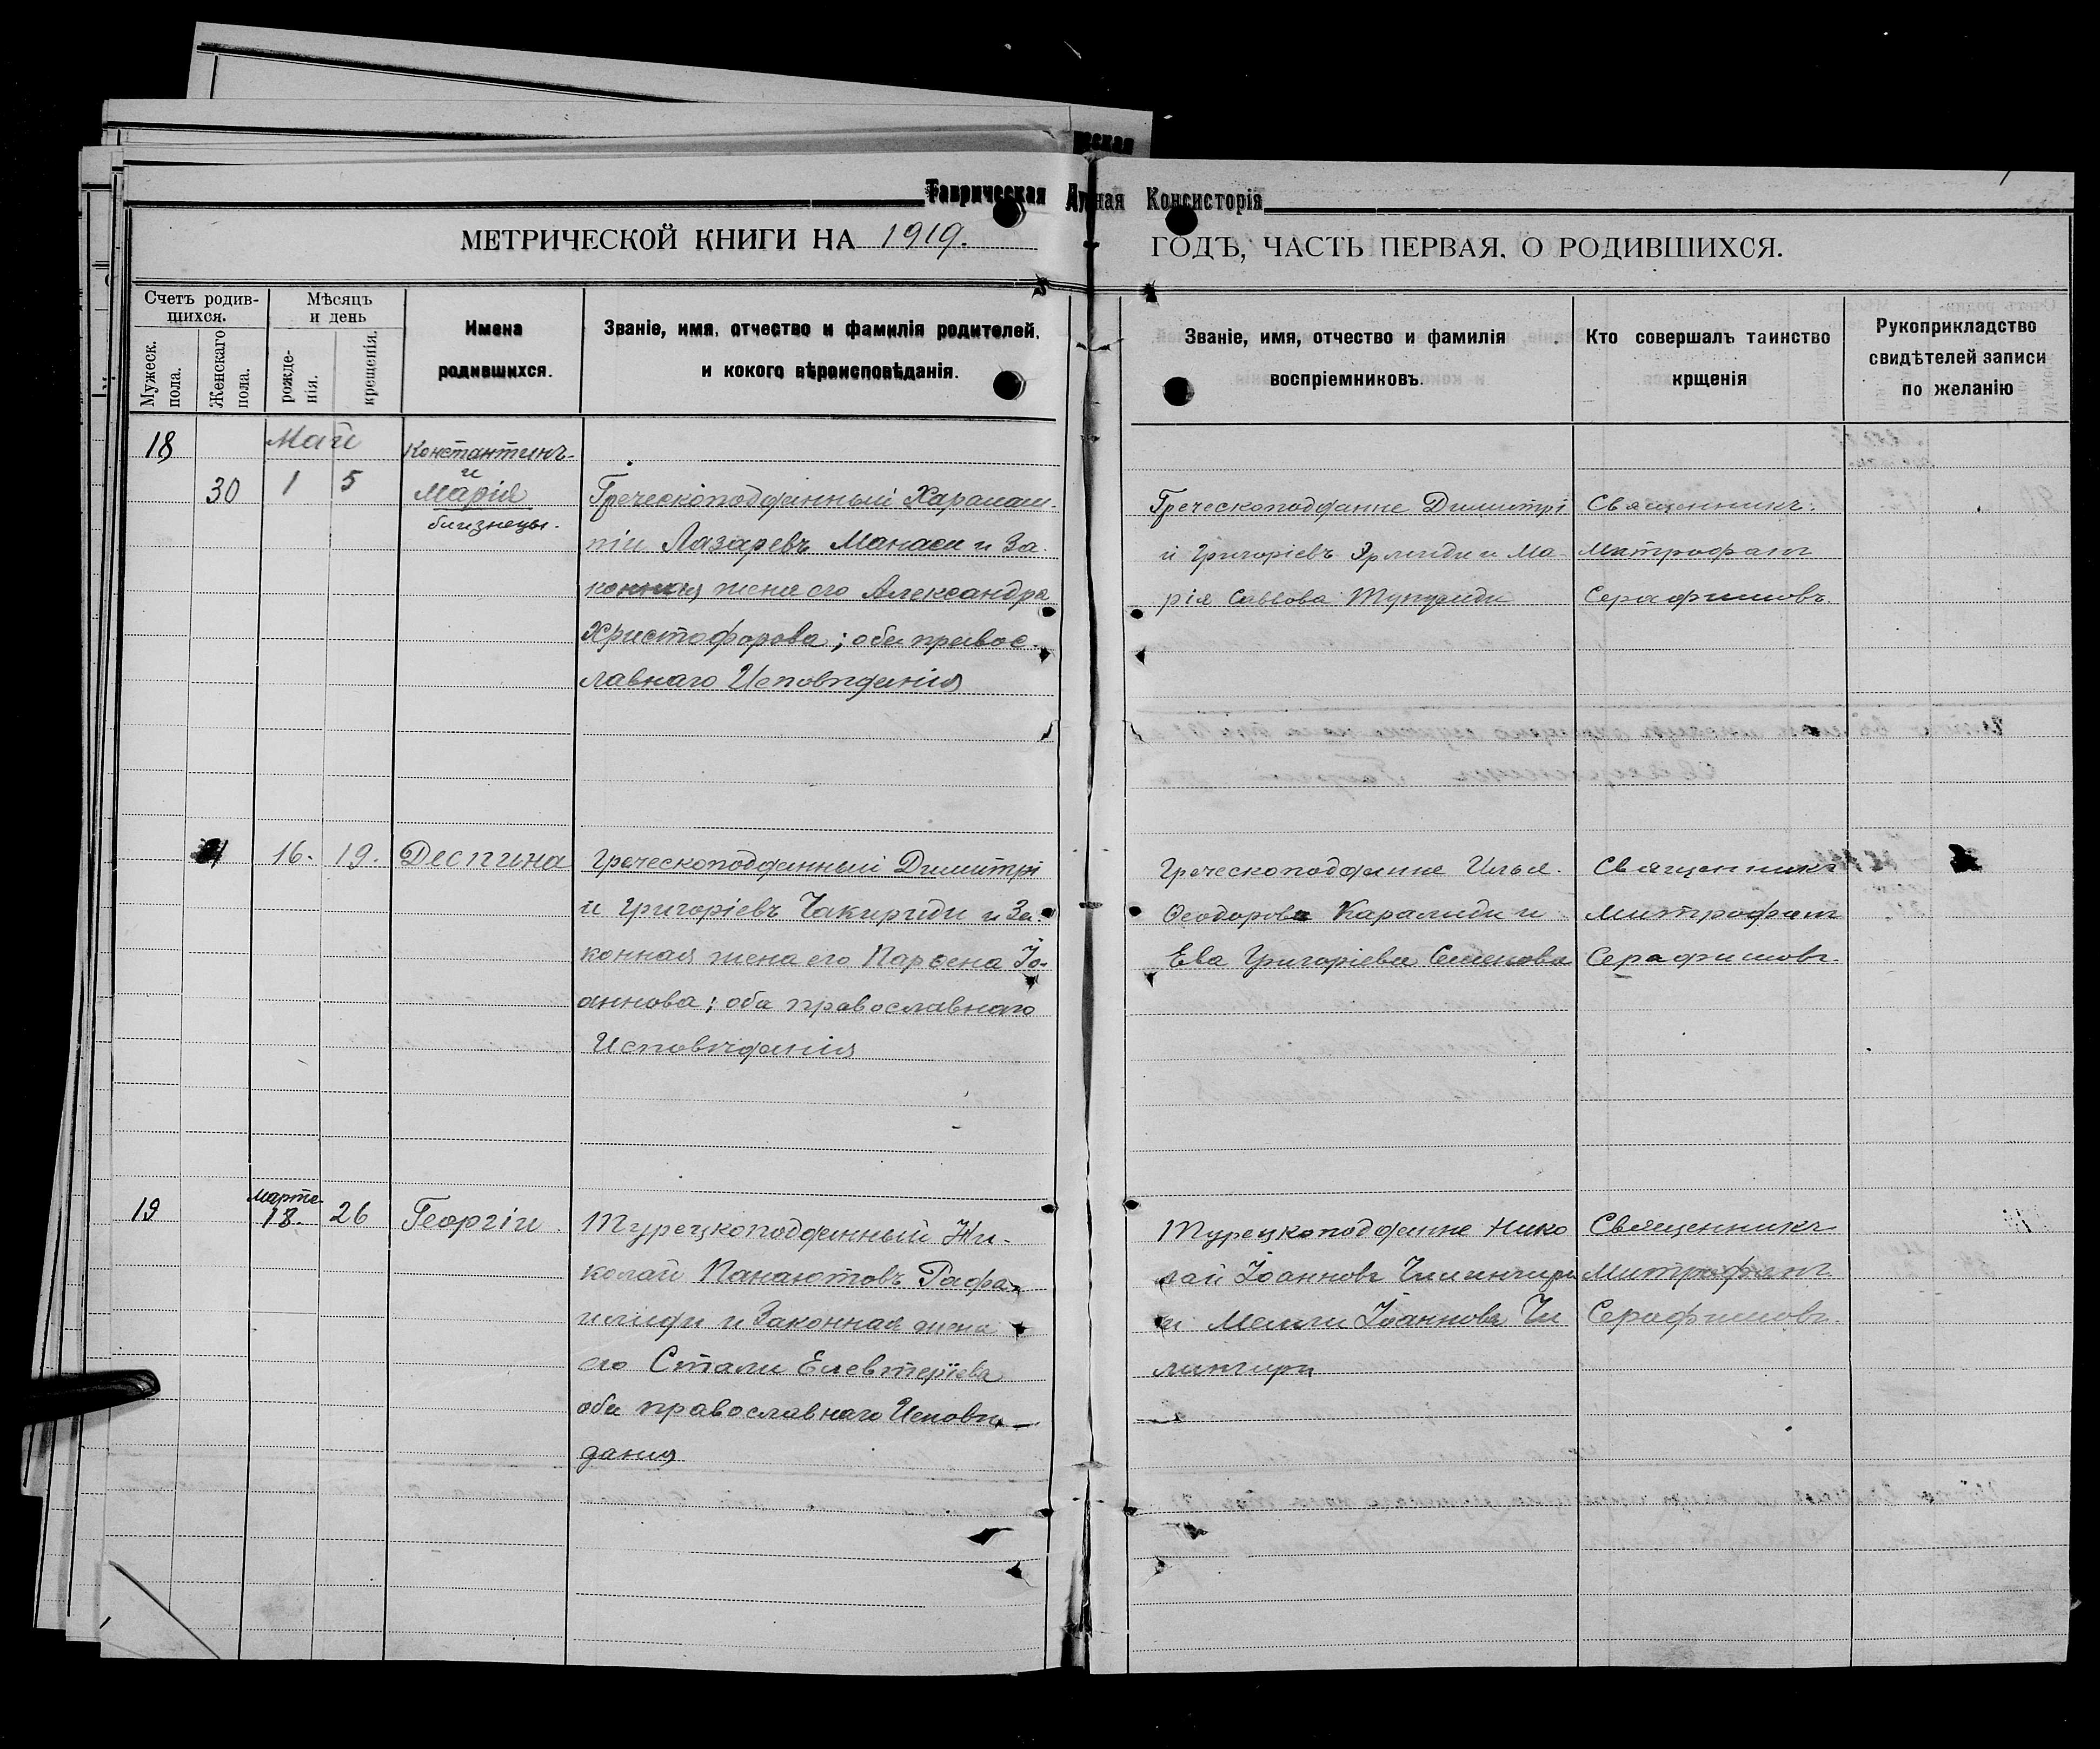 ческая
Таврическая Духная Консисторія
МЕТРИЧЕСКОЙ КНИГИ НА 1919.
ГОДЪ, ЧАСТЬ ПЕРВАЯ, О РОДИВШИХСЯ.
Счетъ родив-
шихся.
Мужеск.
пола.
Женскаго
пола.
Мѣсяцъ
и день
рожде-
нія.
крещенія.
Имена
родившихся.
Званіе, имя, отчество и фамилія родителей,
и кокого вѣроисповѣданія.
Званіе, имя, отчество и фамилія
воспріемниковъ.
Кто совершалъ таинство
крщенія
Рукоприкладство
свидѣтелей записи
по желанію
18
Май
30 1 5
Константинъ
и
Марія
близнецы.
Греческоподданный Харалам-
пій Лазаревъ Манаси и За-
конная жена его Александра
Христофорова; оба правос-
лавнаго Исповѣданія
Греческоподданне Димитрі
й Григоріевъ и Ма-
рія Саввова
Священникъ
Митрофанъ
Серафимовъ.
16. 19. Деспина
Греческоподданный Димитрі
й Григоріевъ Чакириди и За-
конная жена его Парѳена Іо-
аннова; оба православнаго
Исповѣданія
Греческоподданне Илья
Ѳеодорова Каралиди и
Ева Григоріева Семенова
Священникъ
Митрофанъ
Серафимовъ.
19
марта
18. 26 Георгій
Турецкоподданный Ни-
колай Панаютовъ Рафа-
илиди и Законная жена
его Стали Елевтеріева
оба православнаго Исповѣ-
данія
Турецкоподданне Нико
лай Іоанновъ Чилингири
и Іоаннова Чи
лингири
Священникъ
Митрофанъ
Серафимовъ.